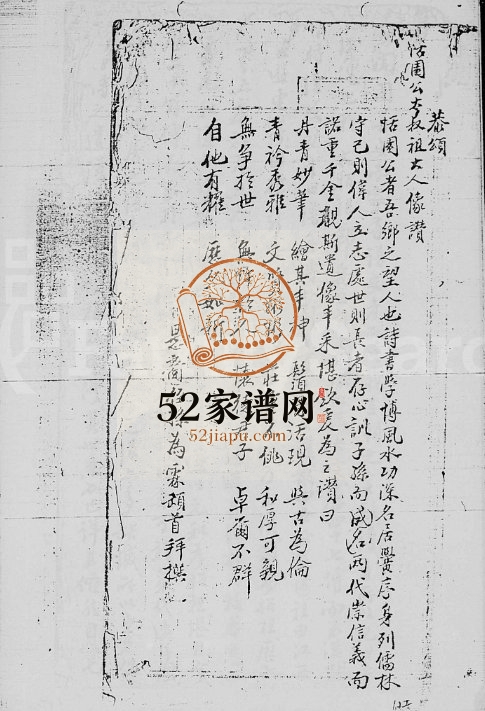 恭頌
恬園公太叔祖大人像讃
恬園公者吾鄉之望人也詩書學博風水功深名居黌序身列儒林
守己則偉人立志處世則長者存心訓子孫而成名兩代崇信義而
諾重千金觀斯遺像丰采堪欽爰為之讃曰
丹青妙筆 繪其丰神 活現 與古為倫
青衿秀雅 文 和厚可親
無爭於世 無 懷 子 卓爾不群
自他有耀 歷 如新
為霖頓首拜撰
52家谱网
52jiapu.com